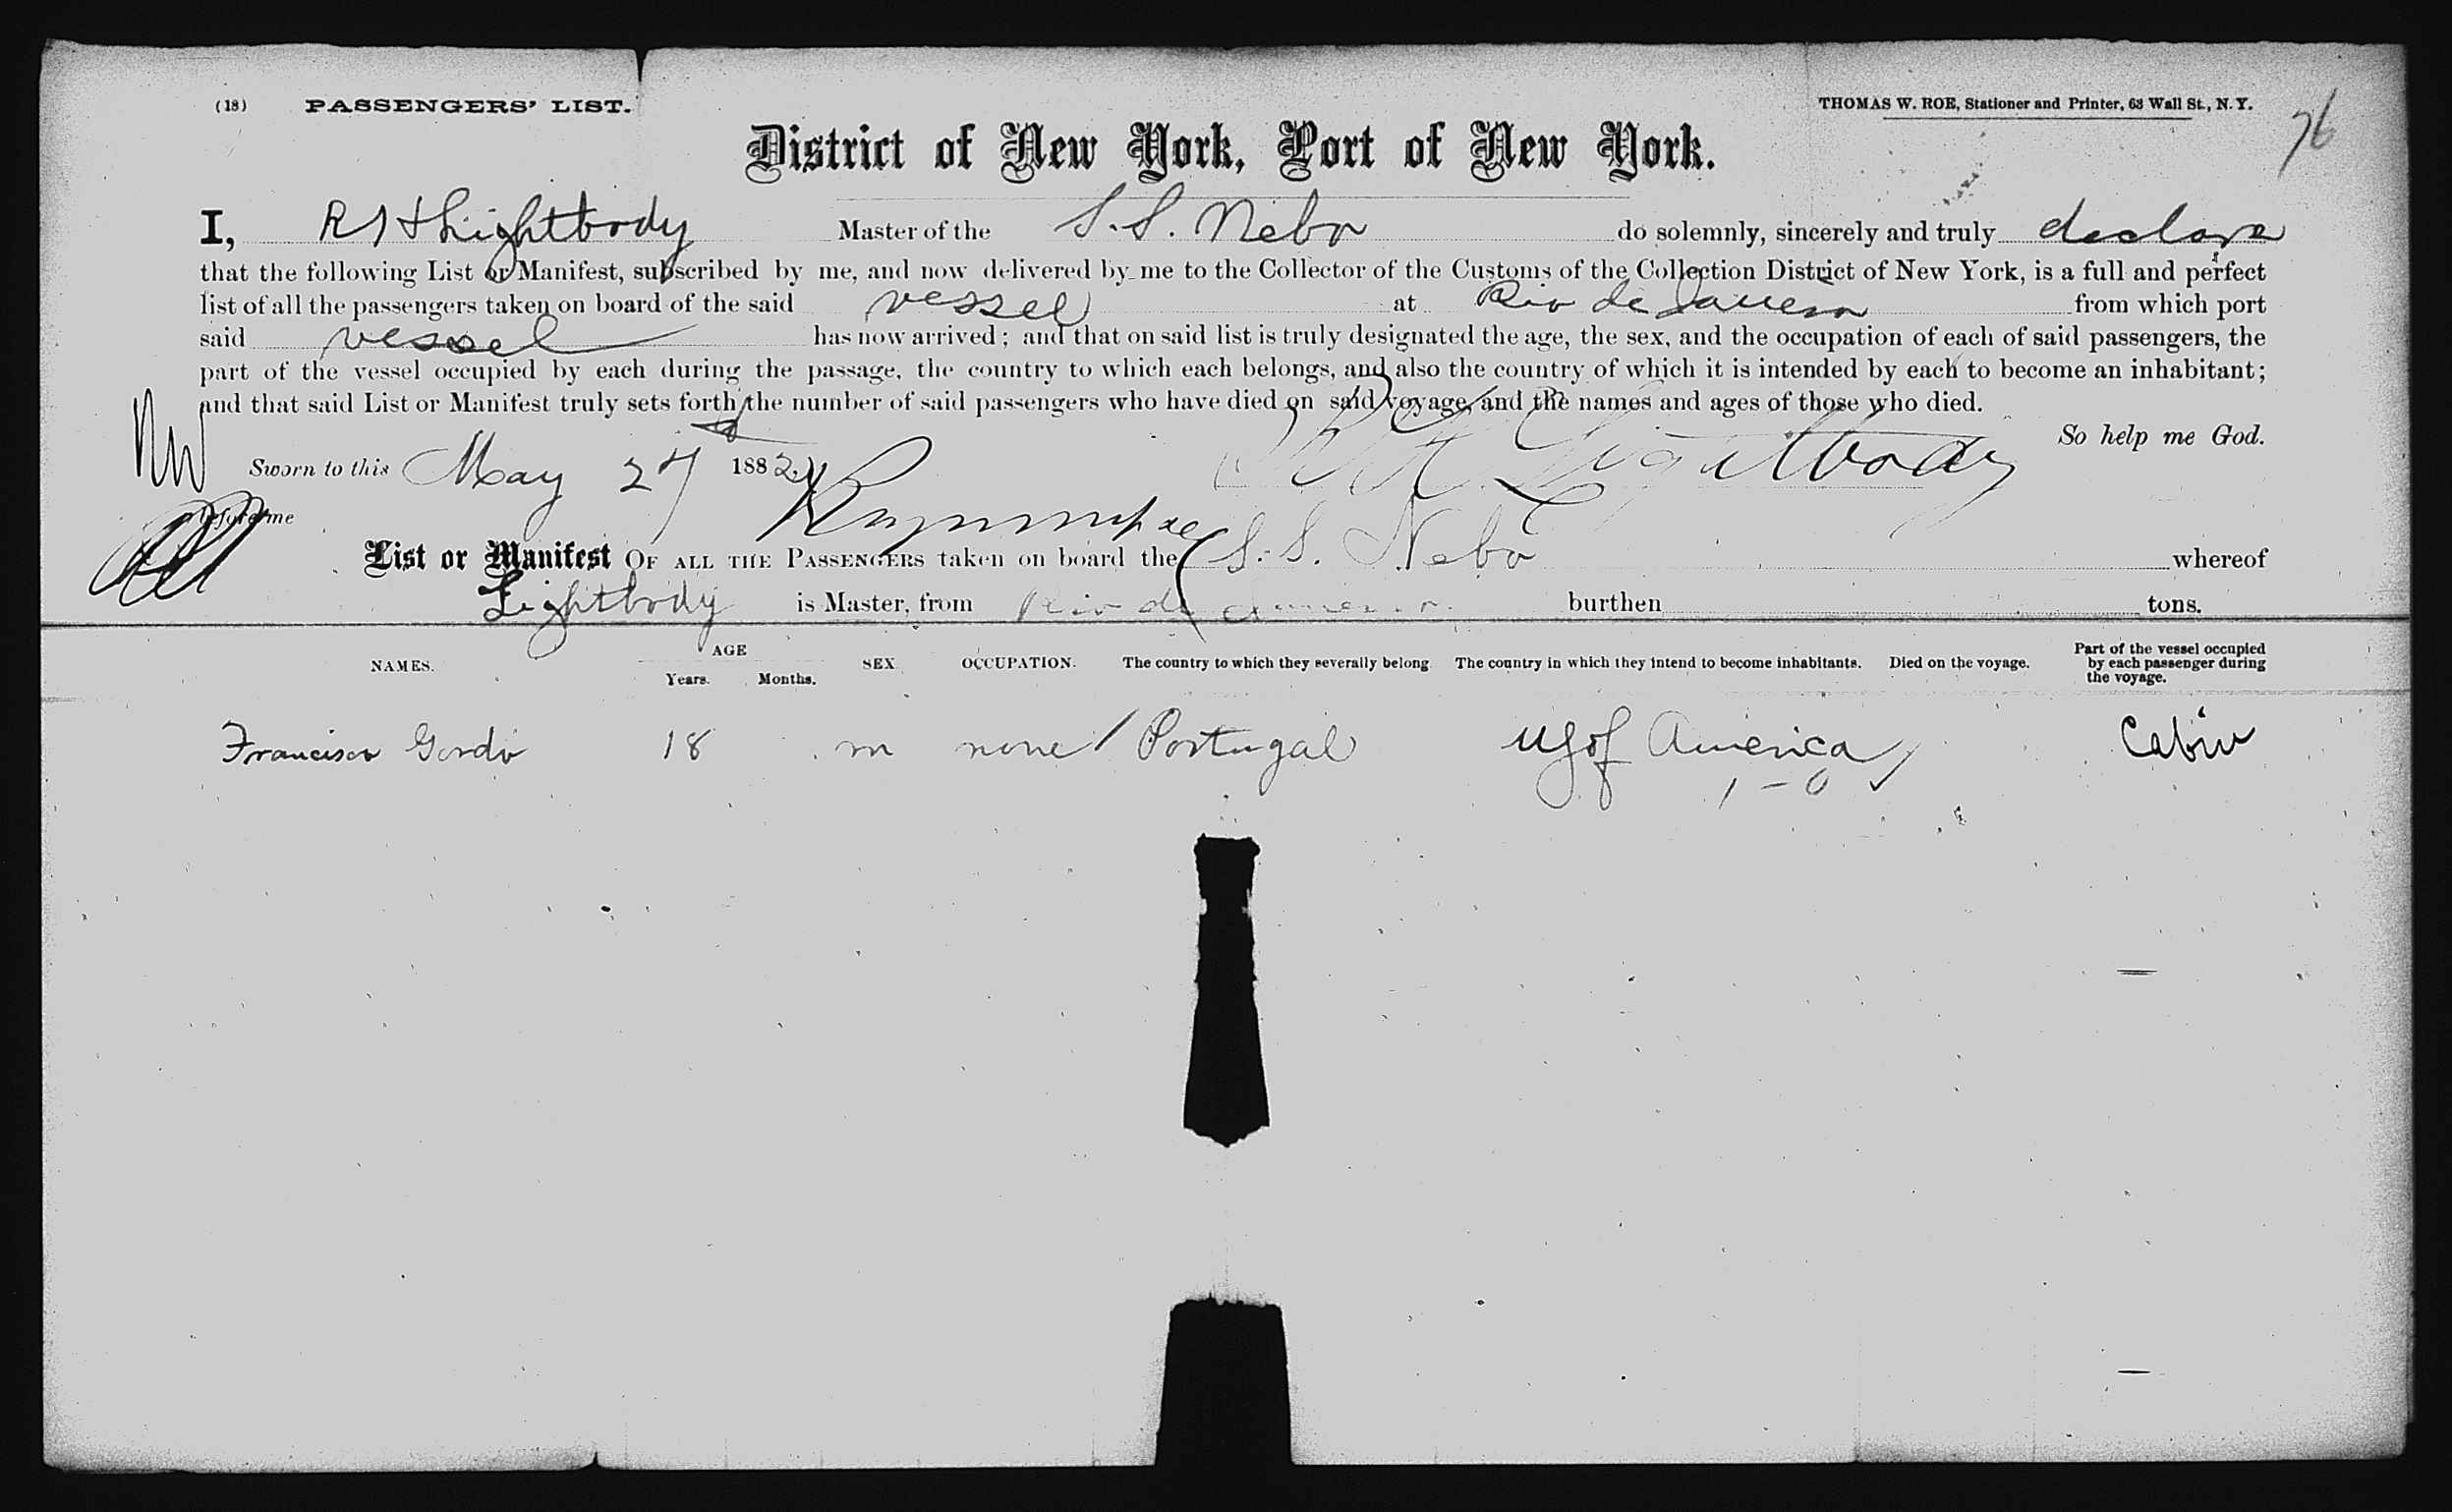 (18) PASSENGERS' LIST.
THOMAS W. ROE, Stationer and Printer, 63 Wall St., N.Y.
76
District of New York, Port of New York.
I, R H Lightbody Master of the S.S. Nebo do solemnly, sincerely and truly declare
that the following List or Manifest, subscribed by me, and now delivered by me to the Collector of the Customs of the Collection District of New York, is a full and perfect
list of all the passengers taken on board of the said vessel at Rio de Janeiro from which port
said vessel has now arrived; and that on said list is truly designated the age, the sex, and the occupation of each of said passengers, the
part of the vessel occupied by each during the passage, the country to which each belongs, and also the country of which it is intended by each to become an inhabitant;
and that said List or Manifest truly sets forth the number of said passengers who have died on said voyage, and the names and ages of those who died.
So help me God.
Sworn to this May 27 1882. R H Lightbody
before me
List or Manifest OF ALL THE PASSENGERS taken on board the S.S. Nebo whereof
Lightbody is Master, from Rio de Janeiro burthen tons.
NAMES. AGE Years. Months. SEX OCCUPATION. The country to which they severally belong The country in which they intend to become inhabitants. Died on the voyage. Part of the vessel occupied by each passenger during the voyage.
Francisco Gordo 18 m none Portugal US of America Cabin
1 - 0